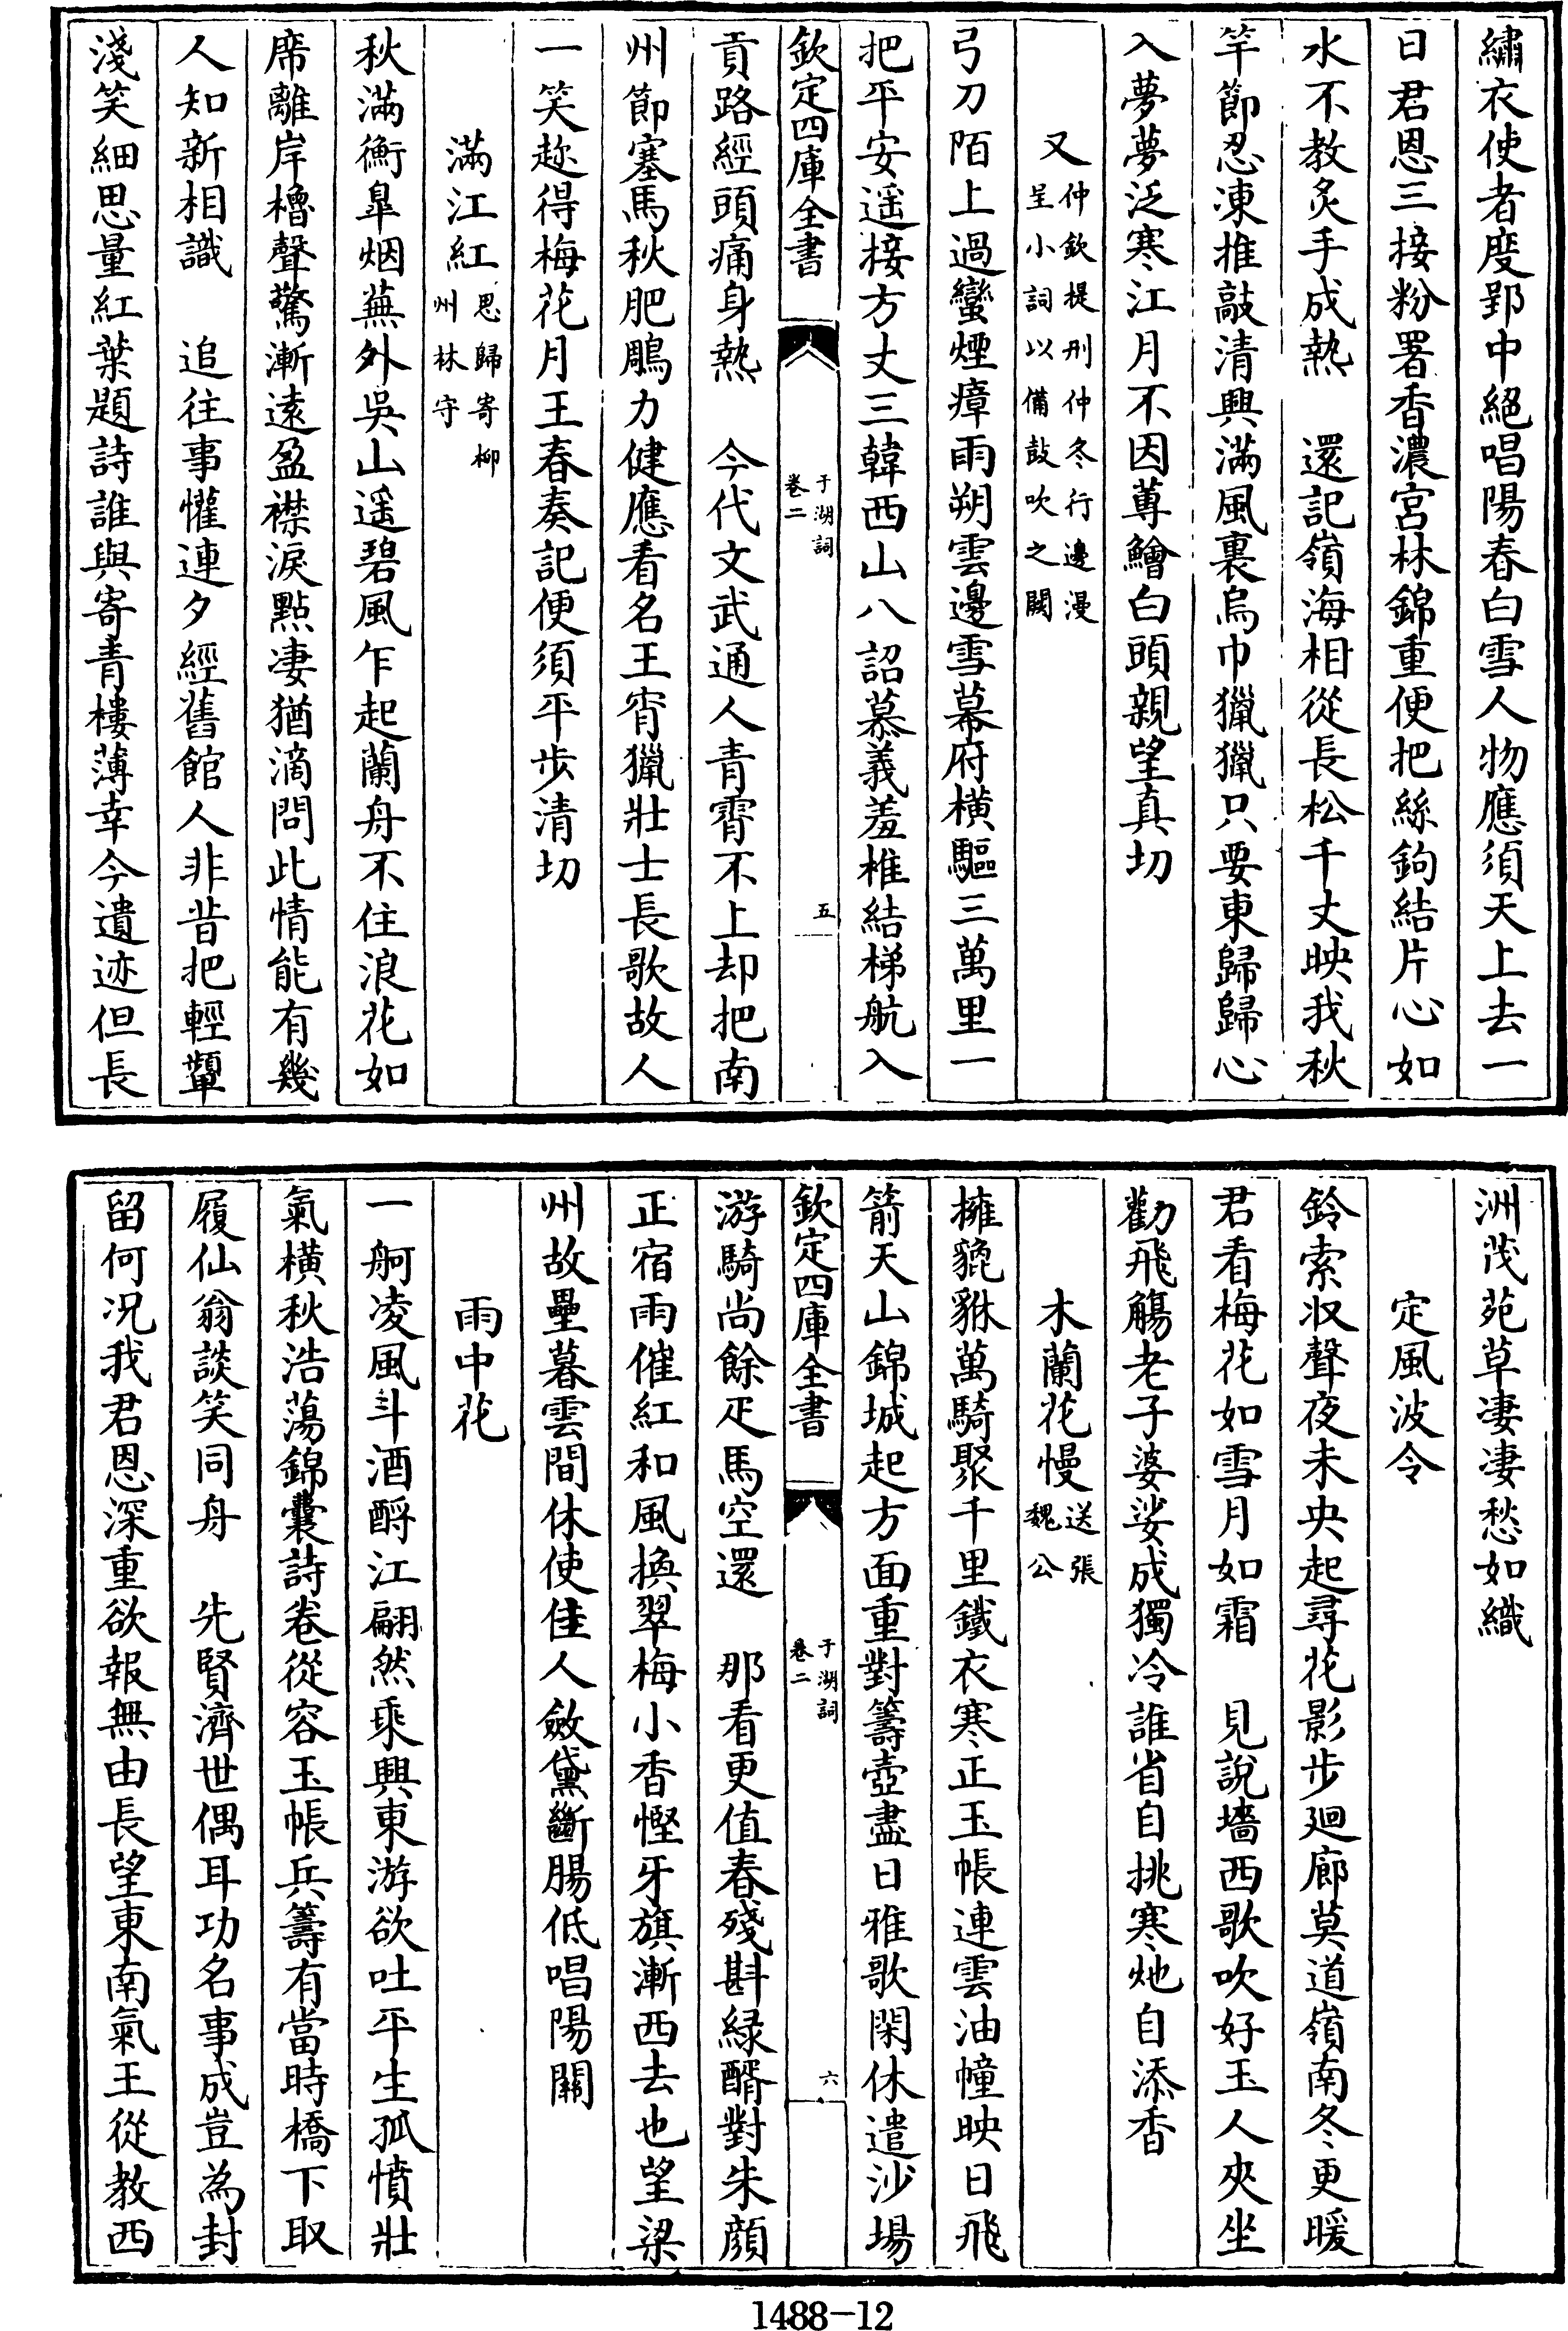 繡衣使者度郢中絕唱陽春白雪人物應須天上去一
日君恩三接粉署香濃宮林錦重便把絲鉤結片心如
水不教炙手成熱　還記嶺海相從長松千丈映我秋
竿節忍凍推敲清興滿風裏烏巾獵獵只要東歸歸心
入夢夢泛寒江月不因蓴鱠白頭親望真切
又仲欽提刑仲冬行邊漫
呈小詞以備鼓吹之闕
弓刀陌上過蠻煙瘴雨朔雲邊雪幕府橫驅三萬里一
把平安遥接方丈三韓西山八詔慕義羞椎結梯航入
欽定四庫全書
于湖詞
卷二
五
貢路經頭痛身熱　今代文武通人青霄不上却把南
州節塞馬秋肥鵰力健應看名王宵獵壯士長歌故人
一笑趂得梅花月王春奏記便須平步清切
滿江紅思歸寄柳
州林守
秋滿衡臯烟蕪外吳山遥碧風乍起蘭舟不住浪花如
席離岸櫓聲驚漸遠盈襟淚點凄猶滴問此情能有幾
人知新相識　追往事懽連夕經舊館人非昔把輕顰
淺笑細思量紅葉題詩誰與寄青樓薄幸今遺迹但長
洲茂苑草凄凄愁如織
定風波令
鈴索収聲夜未央起尋花影步廻廊莫道嶺南冬更暖
君看梅花如雪月如霜　見說墻西歌吹好玉人夾坐
勸飛觴老子婆娑成獨冷誰省自挑寒灺自添香
木蘭花慢送張
魏公
擁貔貅萬騎聚千里鐵衣寒正玉帳連雲油幢映日飛
箭天山錦城起方面重對籌壺盡日雅歌閑休遣沙場
欽定四庫全書
于湖詞
卷二
六
游騎尚餘疋馬空還　那看更值春殘斟緑醑對朱顔
正宿雨催紅和風換翠梅小香慳牙旗漸西去也望梁
州故壘暮雲間休使佳人斂黛斷腸低唱陽關
雨中花
一舸凌風斗酒酹江翩然乘興東游欲吐平生孤憤壯
氣橫秋浩蕩錦囊詩卷從容玉帳兵籌有當時橋下取
履仙翁談笑同舟　先賢濟世偶耳功名事成豈為封
留何况我君恩深重欲報無由長望東南氣王從教西
1488-12